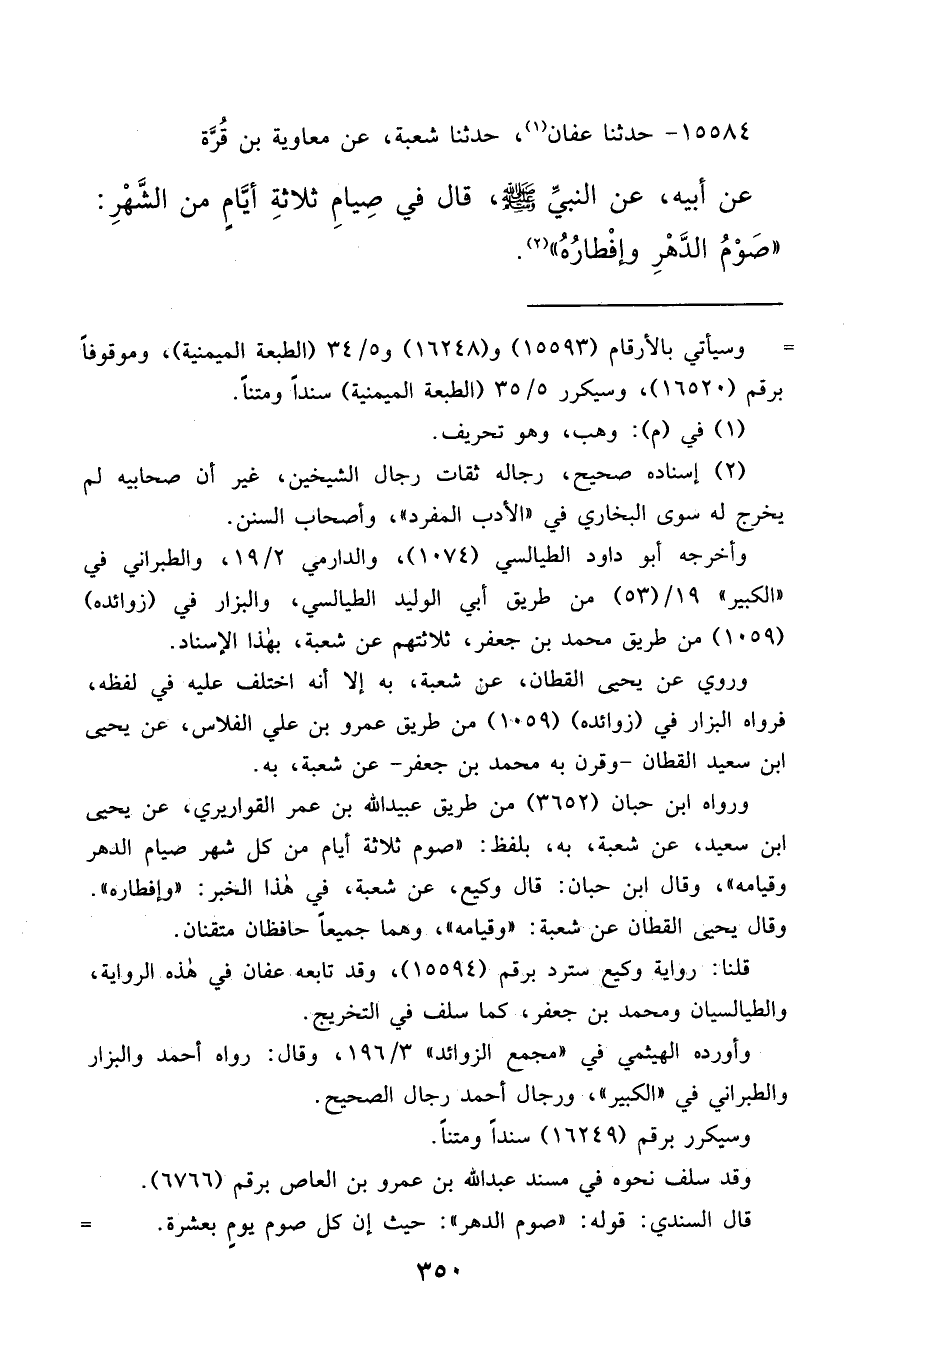 ١٥٥٨٤- حدثنا عفان(١)، حدثنا شعبة، عن معاوية بن قُرَّة
عن أبيه، عن النبيِّ ﷺ، قال في صِيامِ ثلاثةِ أيَّامٍ من الشَّهْرِ:
«صَوْمُ الدَّهْرِ وإفْطارُهُ»(٢).
= وسيأتي بالأرقام (١٥٥٩٣) و(١٦٢٤٨) و٥/ ٣٤ (الطبعة الميمنية)، وموقوفاً
برقم (١٦٥٢٠)، وسيكرر ٥/ ٣٥ (الطبعة الميمنية) سنداً ومتناً.
(١) في (م): وهب، وهو تحريف.
(٢) إسناده صحيح، رجاله ثقات رجال الشيخين، غير أن صحابيه لم
يخرج له سوى البخاري في «الأدب المفرد»، وأصحاب السنن.
وأخرجه أبو داود الطيالسي (١٠٧٤)، والدارمي ٢/ ١٩، والطبراني في
«الكبير» ١٩/ (٥٣) من طريق أبي الوليد الطيالسي، والبزار في (زوائده)
(١٠٥٩) من طريق محمد بن جعفر، ثلاثتهم عن شعبة، بهٰذا الإسناد.
وروي عن يحيى القطان، عن شعبة، به إلا أنه اختلف عليه في لفظه،
فرواه البزار في (زوائده) (١٠٥٩) من طريق عمرو بن علي الفلاس، عن يحيى
ابن سعيد القطان -وقرن به محمد بن جعفر- عن شعبة، به.
ورواه ابن حبان (٣٦٥٢) من طريق عبيدالله بن عمر القواريري، عن يحيى
ابن سعيد، عن شعبة، به، بلفظ: «صوم ثلاثة أيام من كل شهر صيام الدهر
وقيامه»، وقال ابن حبان: قال وكيع، عن شعبة، في هٰذا الخبر: «وإفطاره».
وقال يحيى القطان عن شعبة: «وقيامه»، وهما جميعاً حافظان متقنان.
قلنا: رواية وكيع سترد برقم (١٥٥٩٤)، وقد تابعه عفان في هٰذه الرواية،
والطيالسيان ومحمد بن جعفر، كما سلف في التخريج.
وأورده الهيثمي في «مجمع الزوائد» ٣/ ١٩٦، وقال: رواه أحمد والبزار
والطبراني في «الكبير»، ورجال أحمد رجال الصحيح.
وسيكرر برقم (١٦٢٤٩) سنداً ومتناً.
وقد سلف نحوه في مسند عبدالله بن عمرو بن العاص برقم (٦٧٦٦).
قال السندي: قوله: «صوم الدهر»: حيث إن كل صوم يومٍ بعشرة. =
٣٥٠